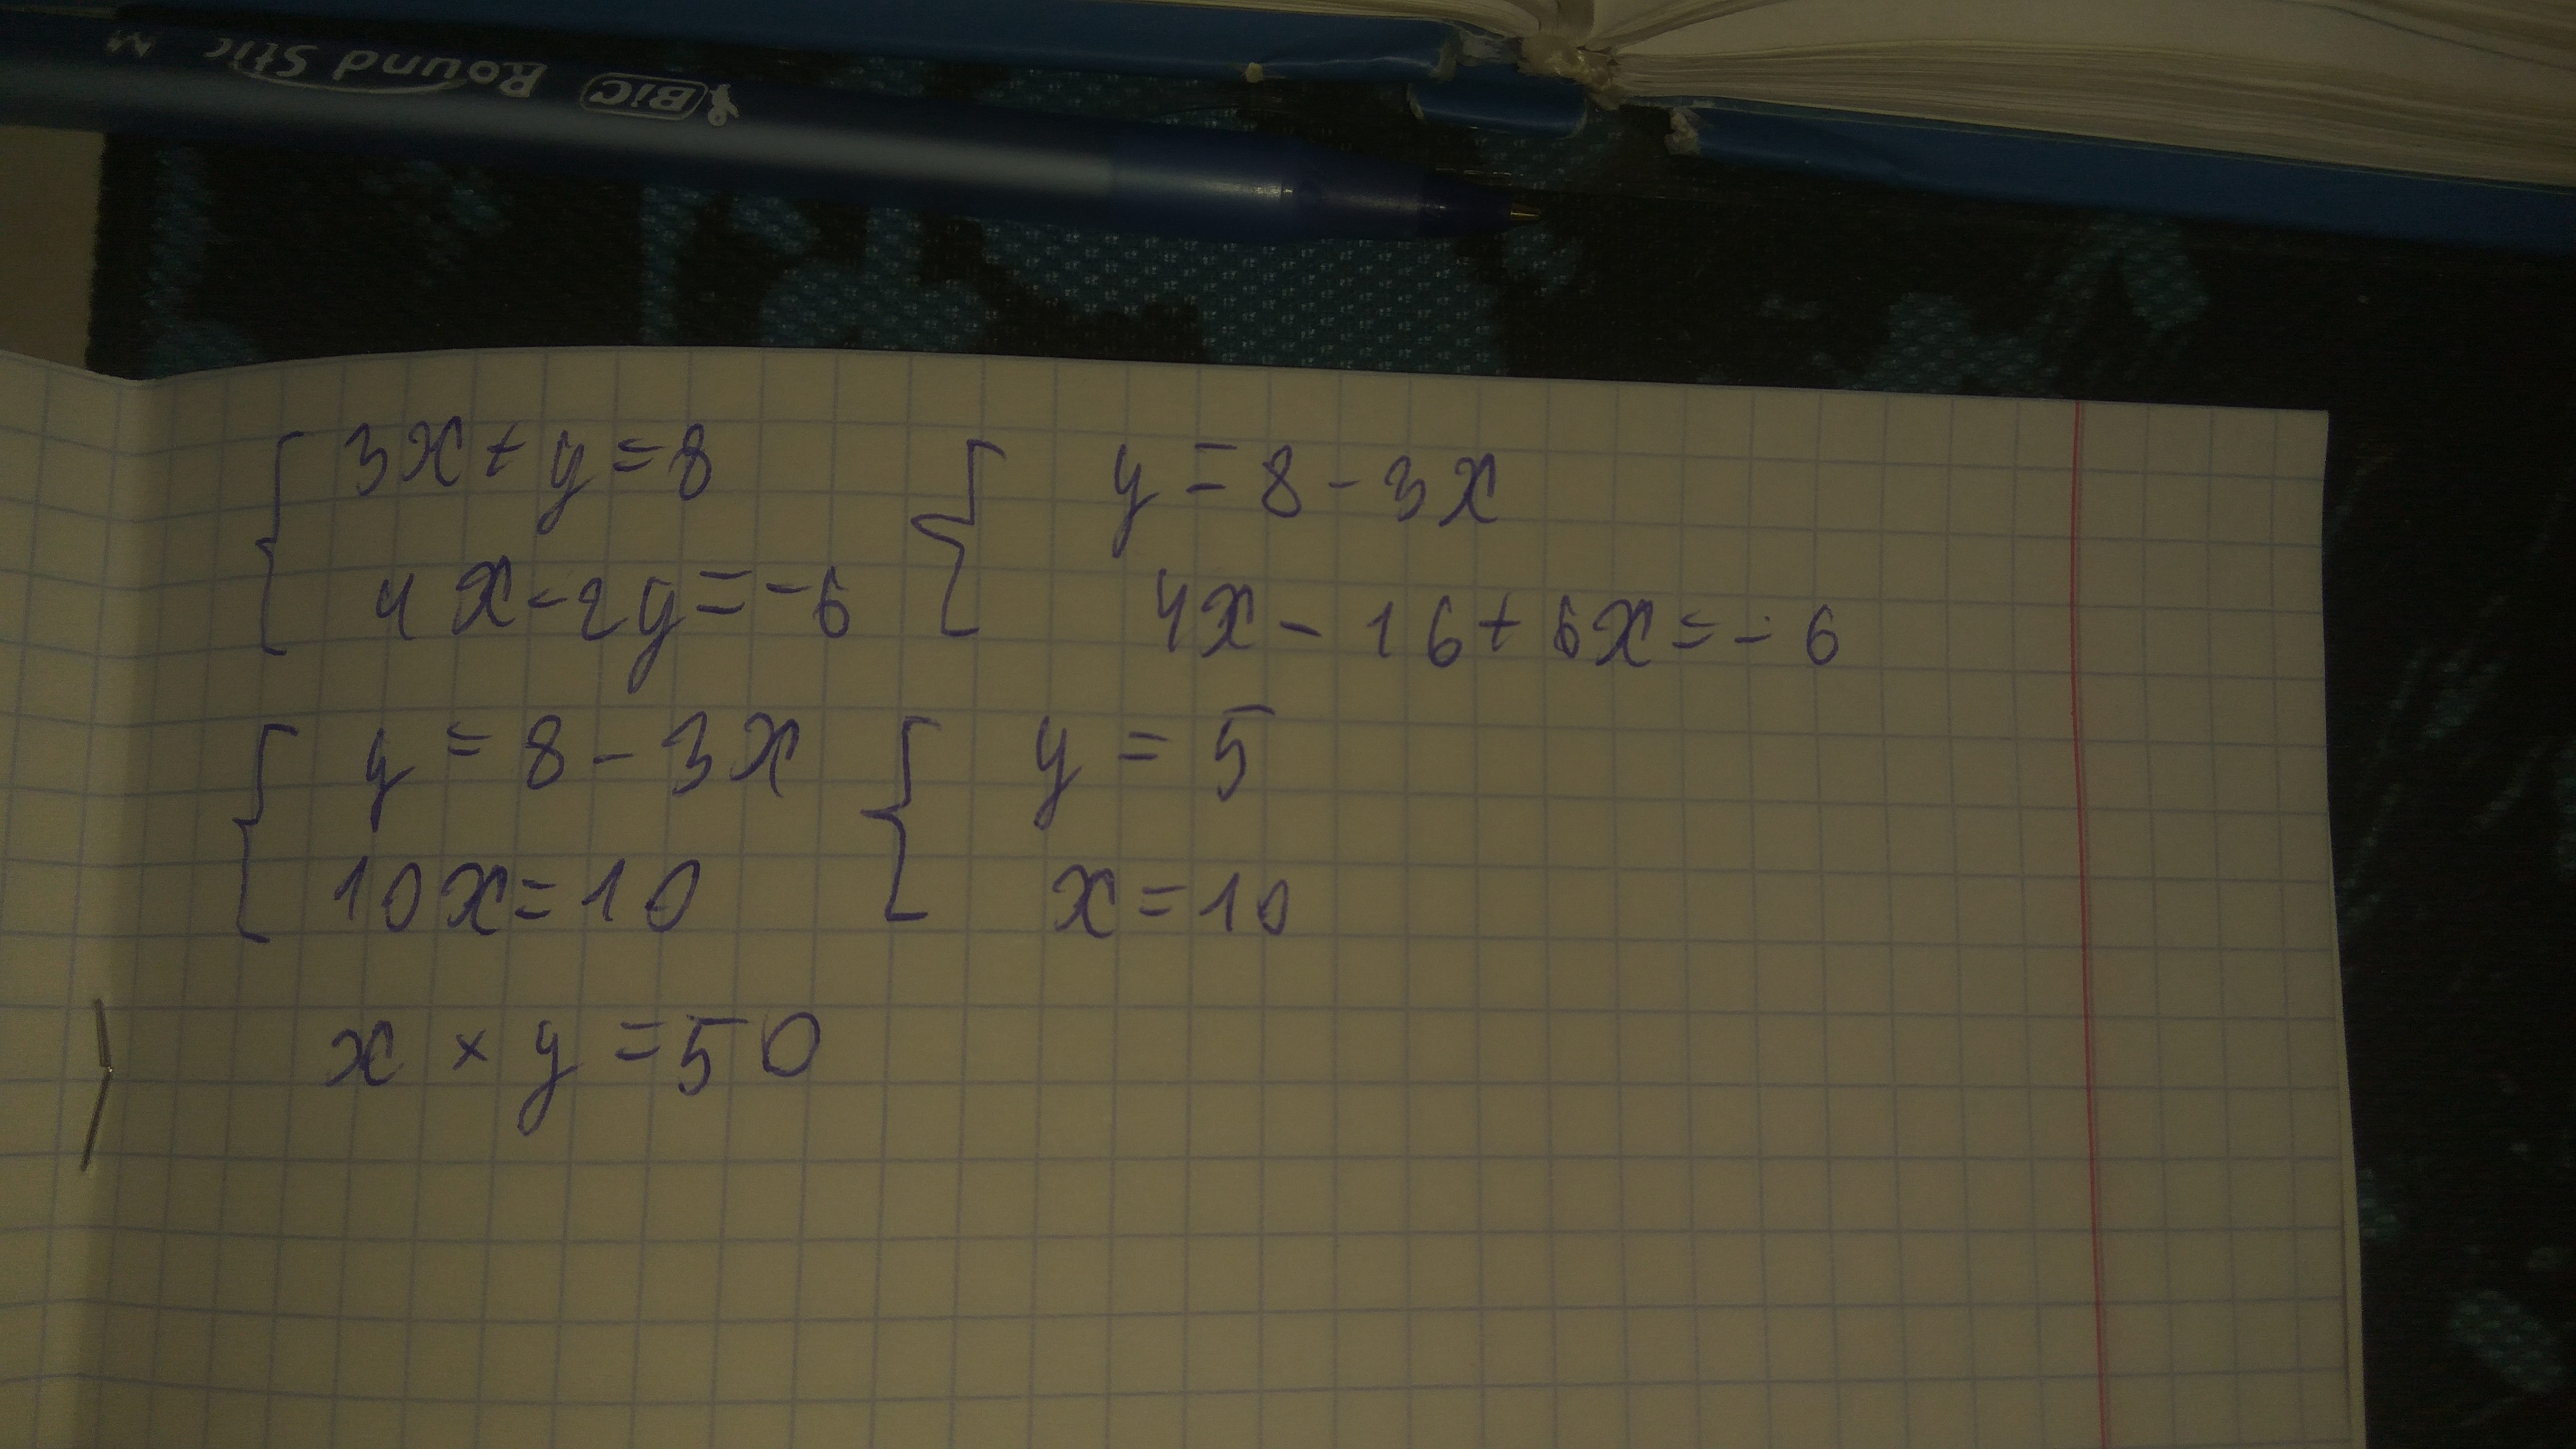 BIC Round Stic M
3x + y = 8
4x - 2y = -6
y = 8 - 3x
4x - 16 + 6x = -6
y = 8 - 3x
10x = 10
y = 5
x = 10
x × y = 50